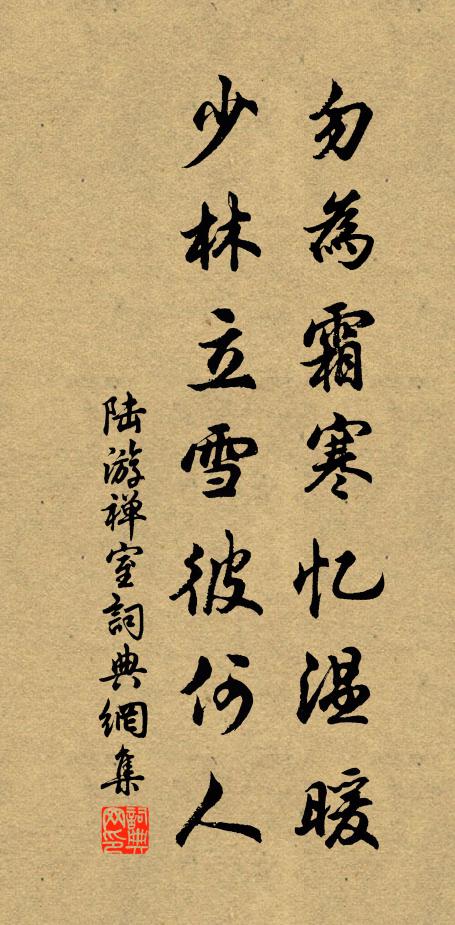 勿為霜寒忆温暖
少林立雪彼何人
陆游禅室詞典網集
詞典网印